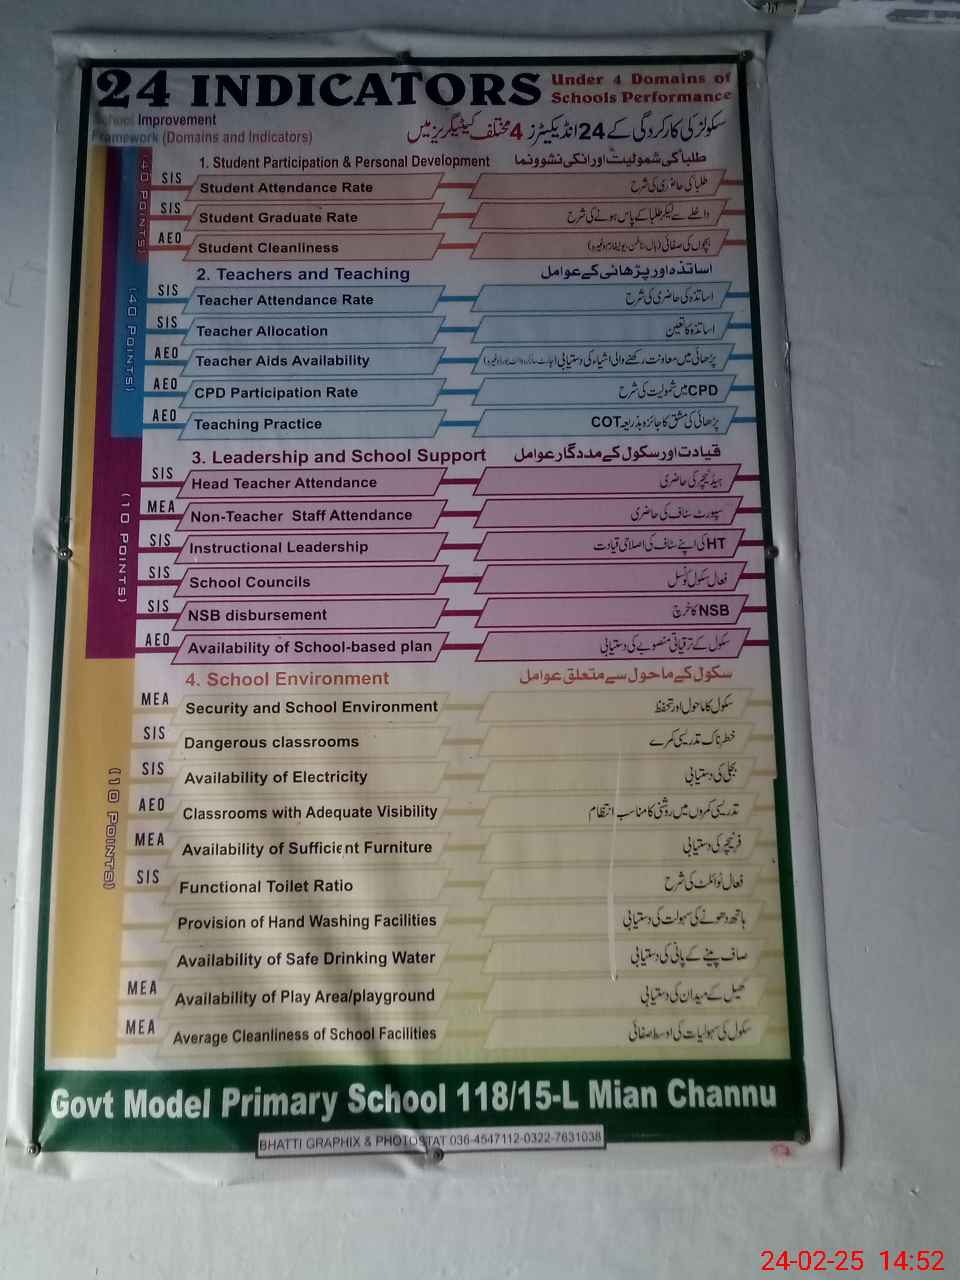 24 INDICATORS
Under 4 Domains of
Schools Performance
School Improvement
Framework (Domains and Indicators)
سکولز کی کارکردگی کے 24 انڈیکیٹرز 4 مختلف کیٹیگریز میں
(40 POINTS)
1. Student Participation & Personal Development طلباٗ کی شمولیت اور انکی نشوونما
SIS Student Attendance Rate طلباٗ کی حاضری کی شرح
SIS Student Graduate Rate داخلے سے لیکر طلبا کے پاس ہونے کی شرح
AEO Student Cleanliness بچوں کی صفائی (بال، ناخن، یونیفارم وغیرہ)
(40 POINTS)
2. Teachers and Teaching اساتذہ اور پڑھائی کے عوامل
SIS Teacher Attendance Rate اساتذہ کی حاضری کی شرح
SIS Teacher Allocation اساتذہ کا تعین
AEO Teacher Aids Availability پڑھائی میں معاونت رکھنے والی اشیاء کی دستیابی
AEO CPD Participation Rate CPD میں شمولیت کی شرح
AEO Teaching Practice پڑھائی کی مشق کا جائزہ بذریعہ COT
(10 POINTS)
3. Leadership and School Support قیادت اور سکول کے مددگار عوامل
SIS Head Teacher Attendance ہیڈ ٹیچر کی حاضری
MEA Non-Teacher Staff Attendance سپورٹ سٹاف کی حاضری
SIS Instructional Leadership HT کی اپنے سٹاف کی اصلاحی قیادت
SIS School Councils فعال سکول کونسل
SIS NSB disbursement NSB کا خرچ
AEO Availability of School-based plan سکول کے ترقیاتی منصوبے کی دستیابی
(10 POINTS)
4. School Environment سکول کے ماحول سے متعلق عوامل
MEA Security and School Environment سکول کا ماحول اور تحفظ
SIS Dangerous classrooms خطرناک تدریسی کمرے
SIS Availability of Electricity بجلی کی دستیابی
AEO Classrooms with Adequate Visibility تدریسی کمروں میں روشنی کا مناسب انتظام
MEA Availability of Sufficient Furniture فرنیچر کی دستیابی
SIS Functional Toilet Ratio فعال ٹوائلٹ کی شرح
Provision of Hand Washing Facilities ہاتھ دھونے کی سہولت کی دستیابی
Availability of Safe Drinking Water صاف پینے کے پانی کی دستیابی
MEA Availability of Play Area/playground کھیل کے میدان کی دستیابی
MEA Average Cleanliness of School Facilities سکول کی سہولیات کی اوسط صفائی
Govt Model Primary School 118/15-L Mian Channu
BHATTI GRAPHIX & PHOTOSTAT 036-4547112-0322-7631038
24-02-25 14:52